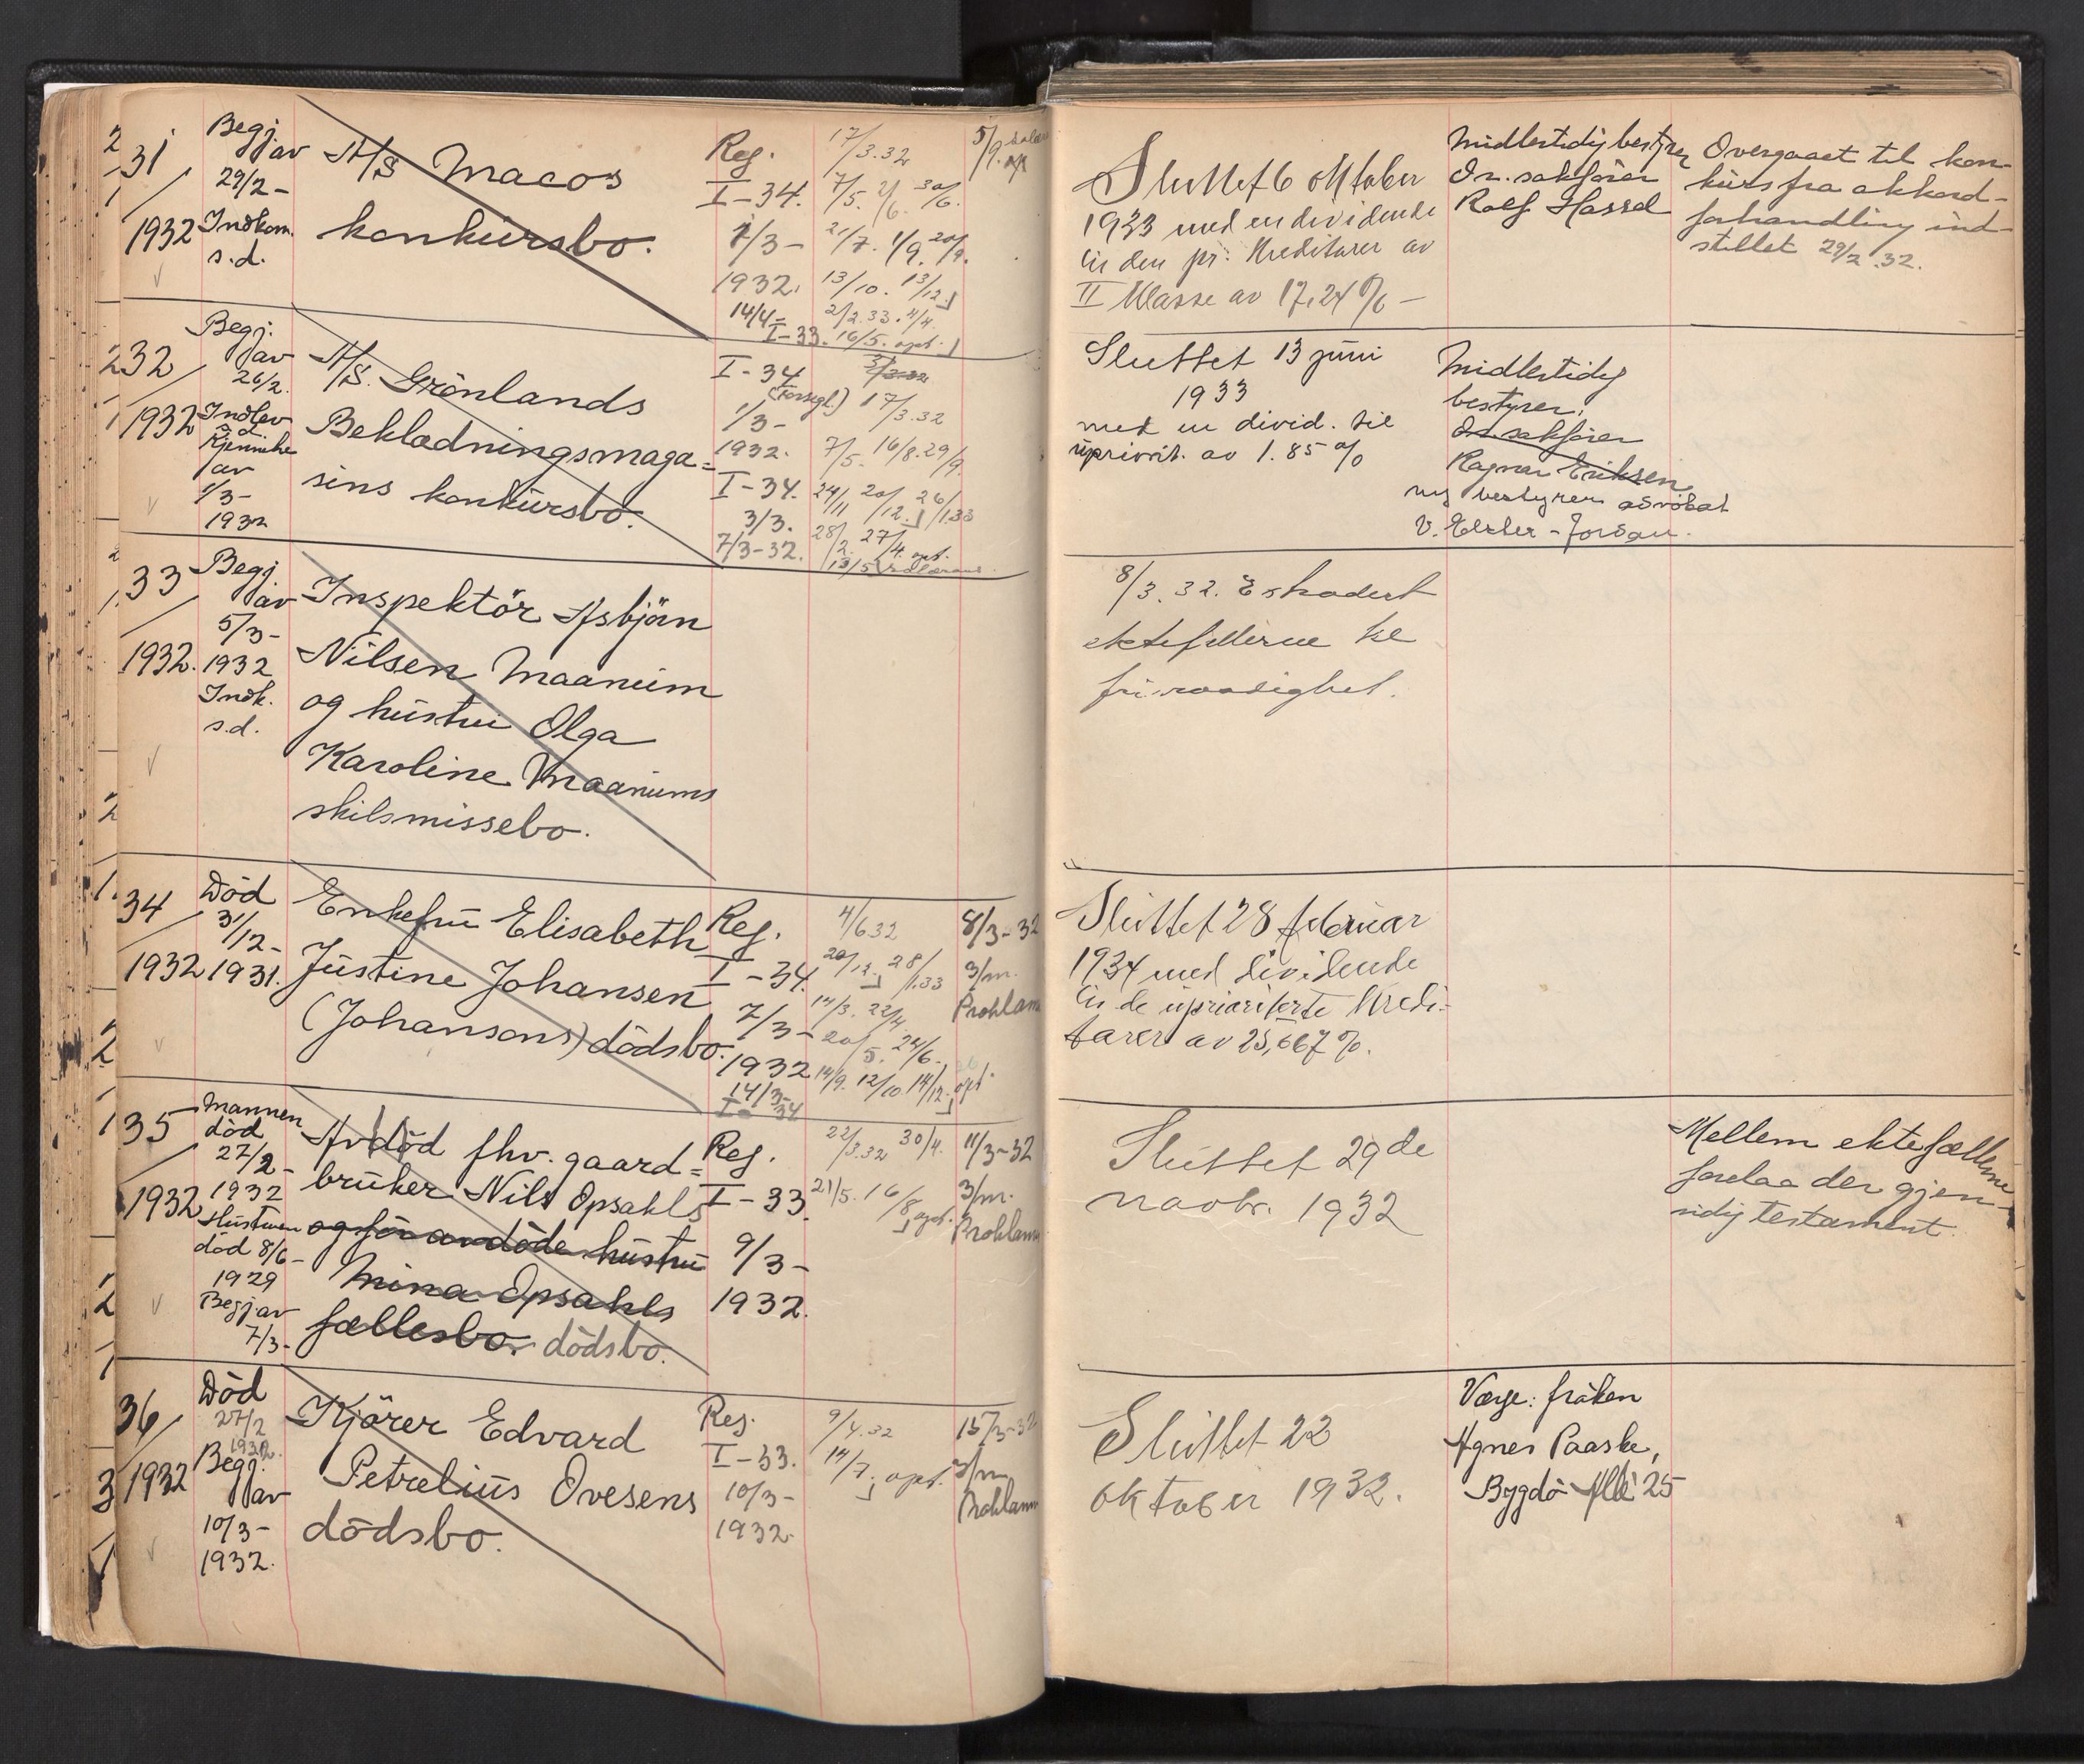 31/1932
Begj. av
29/2-
Indkom.
s.d.
A/S Macos
konkursbo.
Reg.
I-34.
1/3-
1932.
14/4-
I-33.
17/3.32
7/5. 2/6. 30/6.
21/7. 1/9. 20/9.
13/10. 13/12.
2/2.33. 4/4.
16/5. opt.
5/9.
Sluttet 6 oktober
1933 med en dividende
til den pr. Kreditorer av
II Klasse av 17,24 % -
Midlertidig bestyrer
O.r.sakfører
Rolf Hassel
Overgaaet til kon-
kurs fra akkord-
forhandling ind-
stillet 29/2.32.
32/1932
Begj.
av
26/2.
Indlev.
s.d.
Kjennelse
av
1/3-
1932
A/S. Grönlands
Beklædningsmaga=
sins konkursbo.
I-34
(Forsegl.)
1/3-
1932.
I-34.
3/3.
7/3-32.
17/3.32
7/5. 16/8. 29/9.
24/11 20/12. 26/1.33
28/2. 27/4. opt.
13/5
Sluttet 13 juni
1933
med en divid. til
upriorit. av 1.85 %
Midlertidig
bestyrer:
O.r.sakfører
Ragnar Eriksen
ny bestyrer advokat
33/1932.
Begj.
av
5/3-
1932
Indk.
s.d.
Inspektör Asbjörn
Nilsen Maanum
og hustru Olga
Karoline Maanums
skilsmissebo.
8/3.32. Extradert
ektefellerne til
fri raadighet.
34/1932
Död
31/12-
1931.
Enkefru Elisabeth
Justine Johansen
(Johansons) dödsbo.
Reg.
I-34.
7/3-
1932
14/3-
I-34
4/6 32
20/12. 28/1.33
14/3. 22/4.
20/5. 24/6.
14/9. 12/10. 14/12. opt.
8/3-32
3/m.
Proklama
Sluttet 28 februar
1934 med dividende
til de upriariterte Kredi-
tarer av 25,667 %.
35/1932
Mannen
död
27/2-
1932
Hustruen
död 8/6-
1929
Begj. av
7/3-
Avdöd fhv. gaard=
bruker Nils Opsahls
og för avdöde hustru
Mina Opsahls
fællesbo. dödsbo.
Reg.
I-33.
9/3-
1932.
22/3.32 30/4.
21/5. 16/8 opt.
11/3-32
3/m.
Proklama
Sluttet 29de
novbr. 1932
Mellem ektefællene
forelaa der gjen-
sidig testament.
36/1932
Död
27/2
1932.
Begj.
av
10/3-
1932.
Kjörer Edvard
Petrelius Ovesens
dödsbo.
Reg.
I-33.
10/3-
1932.
9/4.32
14/7. opt.
15/3-32
3/m
Proklama
Sluttet 22
oktober 1932.
Værge: fröken
Agnes Paaske,
Bygdö Allé 25